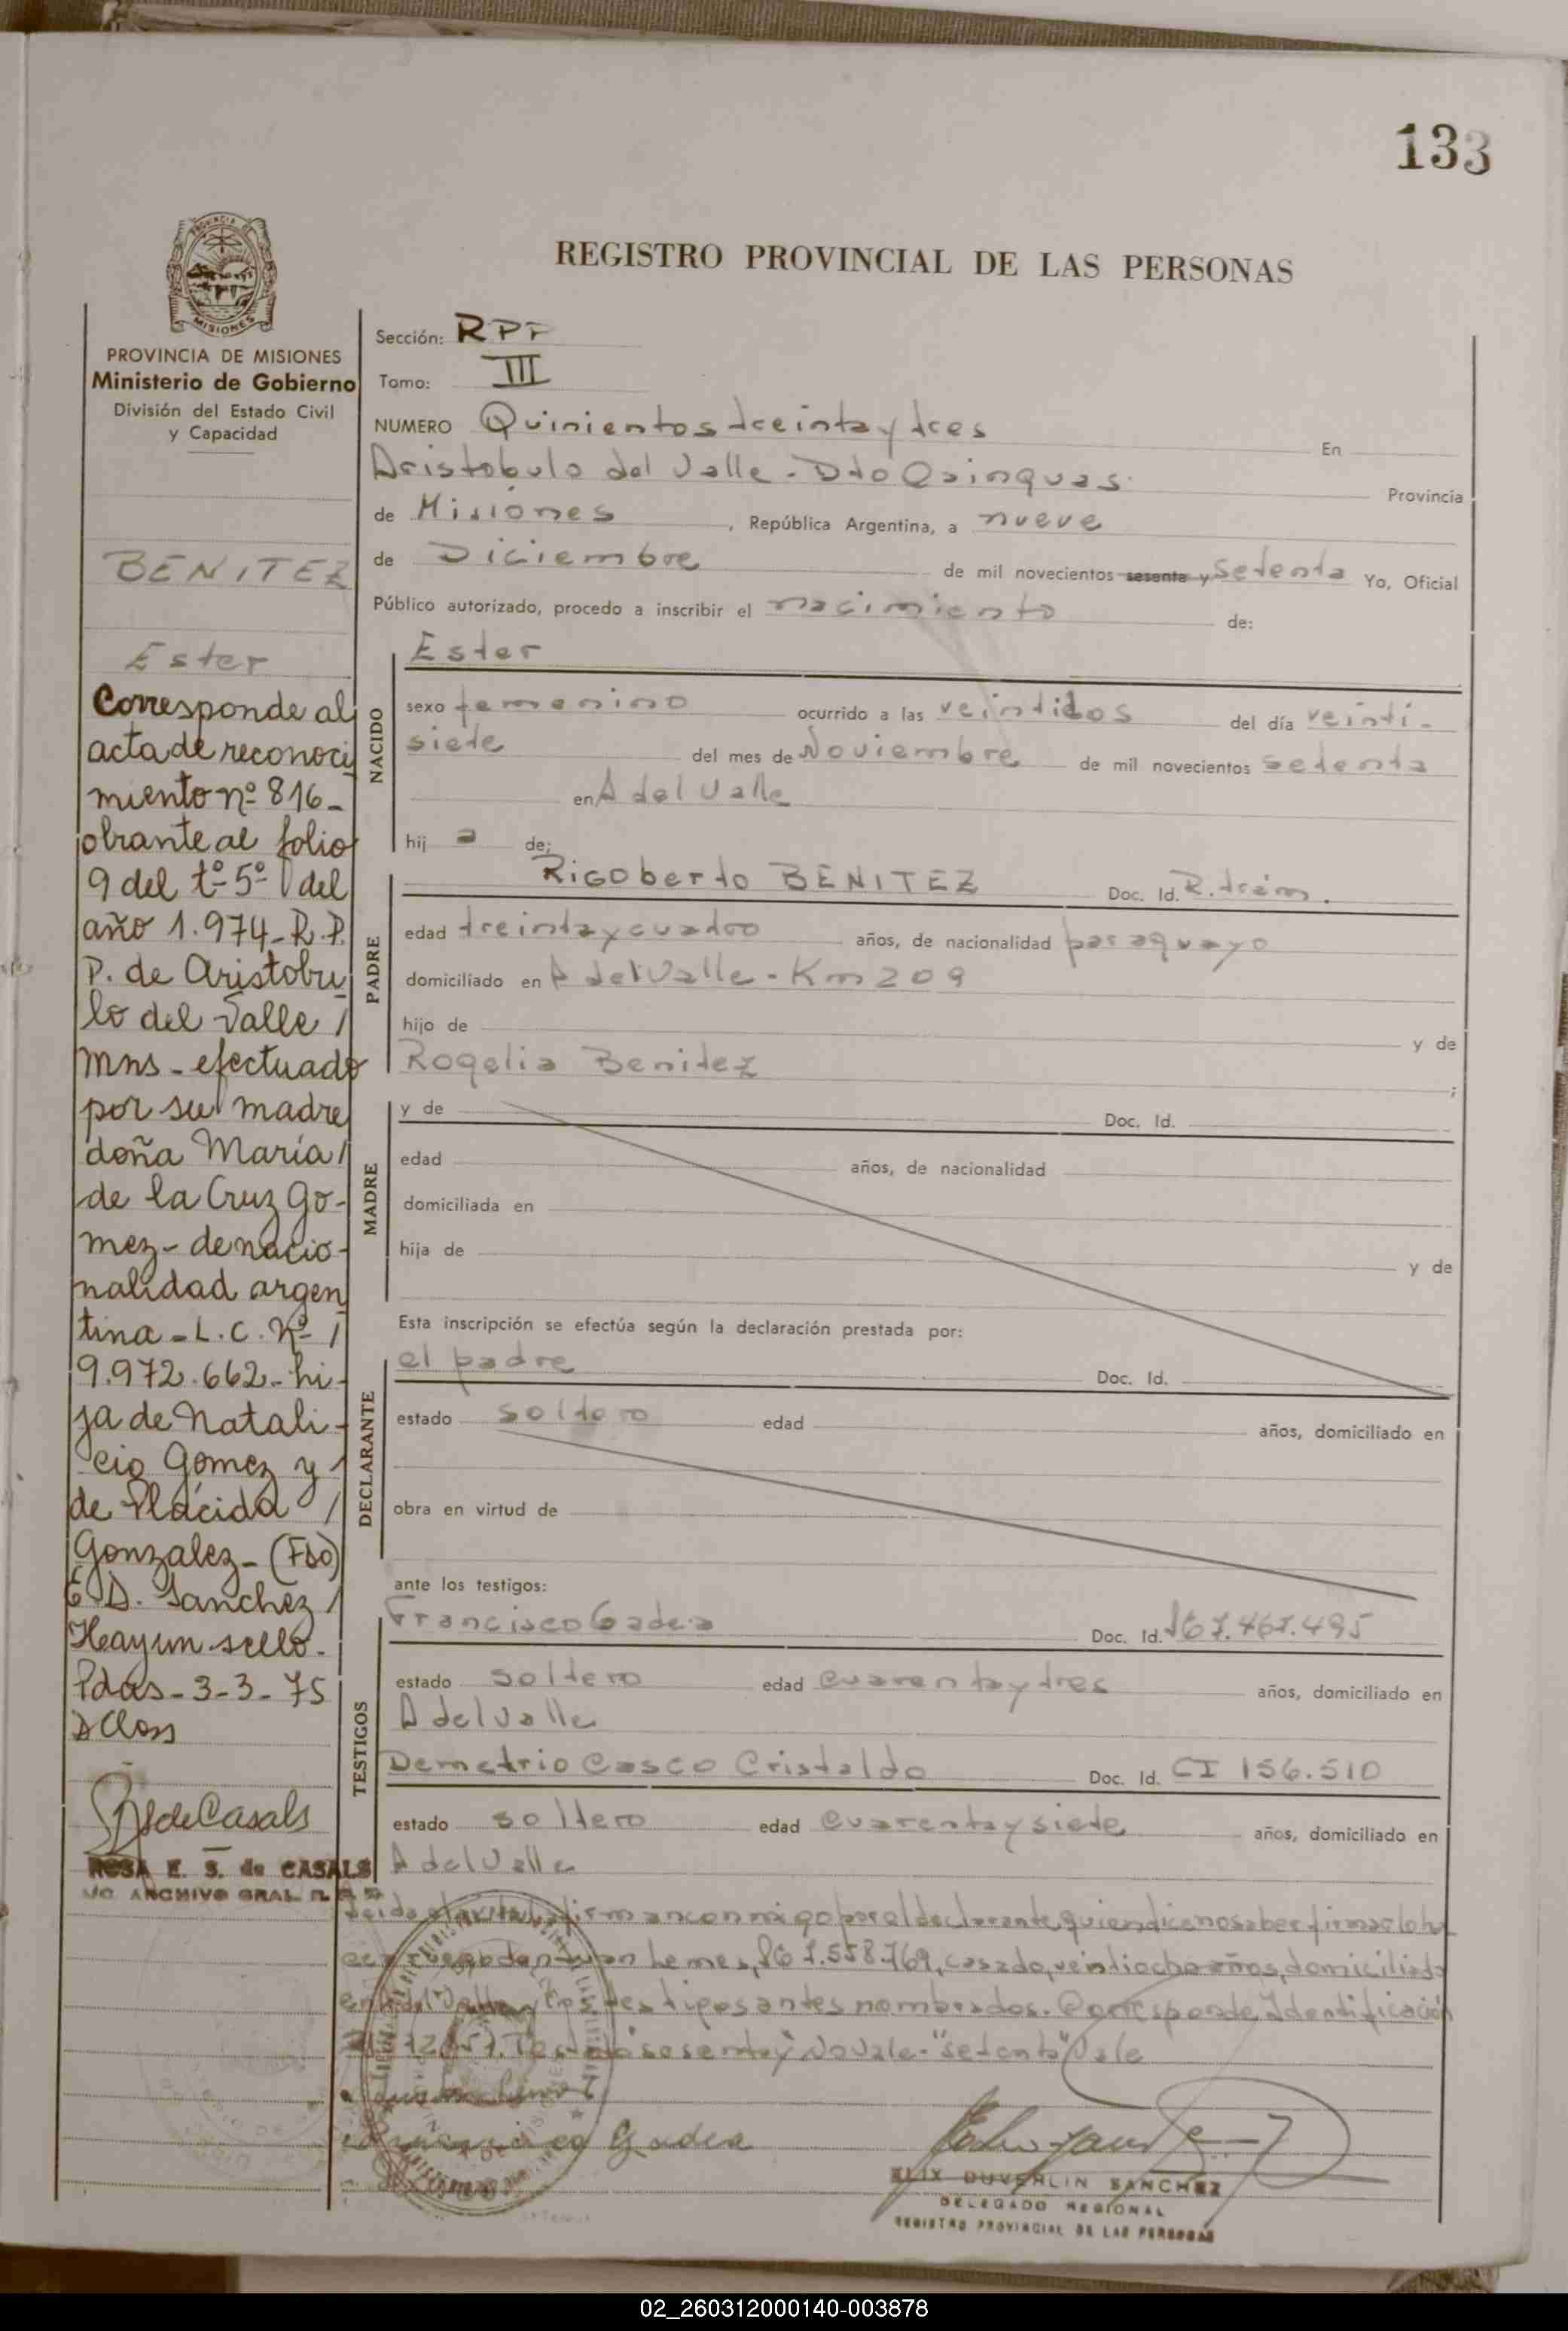 133
REGISTRO PROVINCIAL DE LAS PERSONAS
PROVINCIA DE MISIONES
Ministerio de Gobierno
División del Estado Civil
y Capacidad
BENITEZ
Ester
Corresponde al
acta de reconoci
miento nº 816-
obrante al folio
9 del tº 5º del
año 1.974- R.P.
P. de Aristobu
lo del Valle /
Mns - efectuado
por su madre
doña María /
de la Cruz Go-
mez - de nacio-
nalidad argen
tina - L.C. Nº /
9.972.662 - hi-
ja de Natali-
cio Gomez y /
de Plácida /
Gonzalez - (Fdo)
E D. Sanchez /
Hay un sello -
Pdas - 3-3-75
ROSA E. S. de CASALS
ARCHIVO GRAL
Sección: RPP
Tomo: III
NUMERO Quinientos treinta y tres En
Aristobulo del Valle - Dto Cainguas Provincia
de Misiones, República Argentina, a nueve
de Diciembre de mil novecientos sesenta y setenta Yo, Oficial
Público autorizado, procedo a inscribir el nacimiento de:
NACIDO
Ester
sexo femenino ocurrido a las veintidos del día veinti-
siete del mes de Noviembre de mil novecientos setenta
en A del Valle
hij a de:
PADRE
Rigoberto BENITEZ Doc. Id. R. trám.
edad treinta y cuatro años, de nacionalidad paraguayo
domiciliado en A del Valle - Km 209
hijo de y de
Rogelia Benitez ;
MADRE
y de Doc. Id.
edad años, de nacionalidad
domiciliada en
hija de y de
Esta inscripción se efectúa según la declaración prestada por:
DECLARANTE
el padre Doc. Id.
estado soltero edad años, domiciliado en
obra en virtud de
ante los testigos:
TESTIGOS
Francisco Gadea Doc. Id.
estado soltero edad cuarenta y tres años, domiciliado en
A del Valle
Demetrio Casco Cristaldo Doc. Id. CI 156.510
estado soltero edad cuarenta y siete años, domiciliado en
A del Valle
firman conmigo por el declarante, quien dice no saber firmar lo ha
ce a ruego don Juan Lemes, casado, veintiocho años, domiciliado
en A del Valle y los testigos antes nombrados. Corresponde Identificación
Testado "sesenta y" No Vale - "setenta" Vale
Francisco Gadea
ELIX DUVERLIN SANCHEZ
DELEGADO REGIONAL
REGISTRO PROVINCIAL DE LAS PERSONAS
02_260312000140-003878